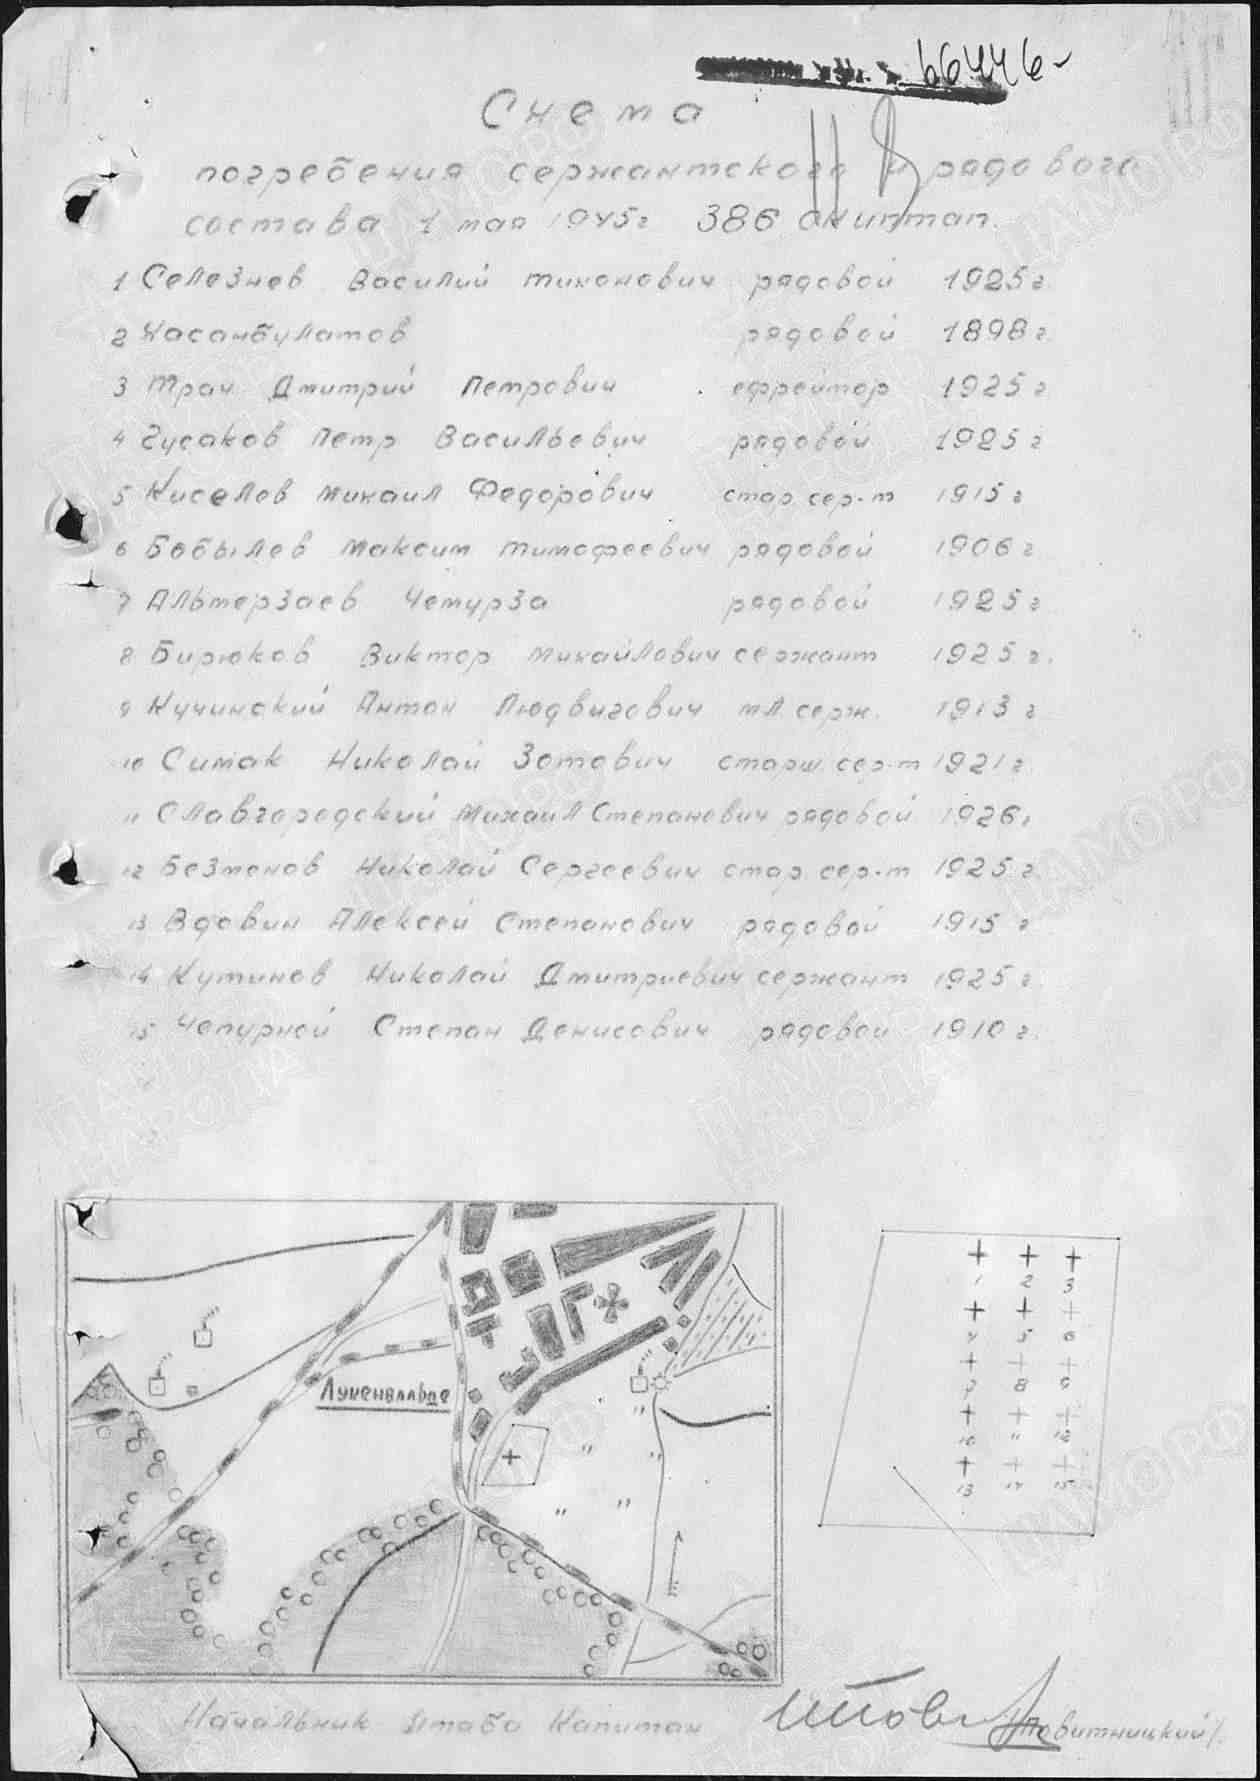 66446
Схема
погребения сержантского и рядового
состава 1 мая 1945г 386 оиптап.
1 Селезнев Василий Тихонович рядовой 1925г.
2 Хасанбулатов рядовой 1898г.
3 Трач Дмитрий Петрович ефрейтор 1925г
4 Гусаков Петр Васильевич рядовой 1925г
5 Киселов Михаил Федорович стар. сер-т 1915г
6 Бобылев Максим Тимофеевич рядовой 1906г
7 Альтерзаев Чемурза рядовой 1925г
8 Бирюков Виктор Михайлович сержант 1925г.
9 Кучинский Антон Людвигович мл. серж. 1913г
10 Симак Николай Зотович старш. сер-т 1921г.
11 Славгородский Михаил Степанович рядовой 1926г
12 Безменов Николай Сергеевич стар. сер-т 1925г.
13 Вдовин Алексей Степанович рядовой 1915г
14 Кутинов Николай Дмитриевич сержант 1925г.
15 Чепурной Степан Денисович рядовой 1910г.
Лукенвальде
1 2 3
4 5 6
7 8 9
10 11 12
13 14 15
Начальник штаба Капитан
ПАМЯТЬ НАРОДА
ЦАМО РФ